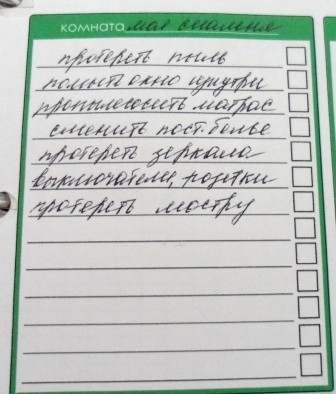 комната моя спальня
протереть пыль
помыть окно изнутри
пропылесосить матрас
сменить пост. белье
протереть зеркала
выключатели, розетки
протереть люстру